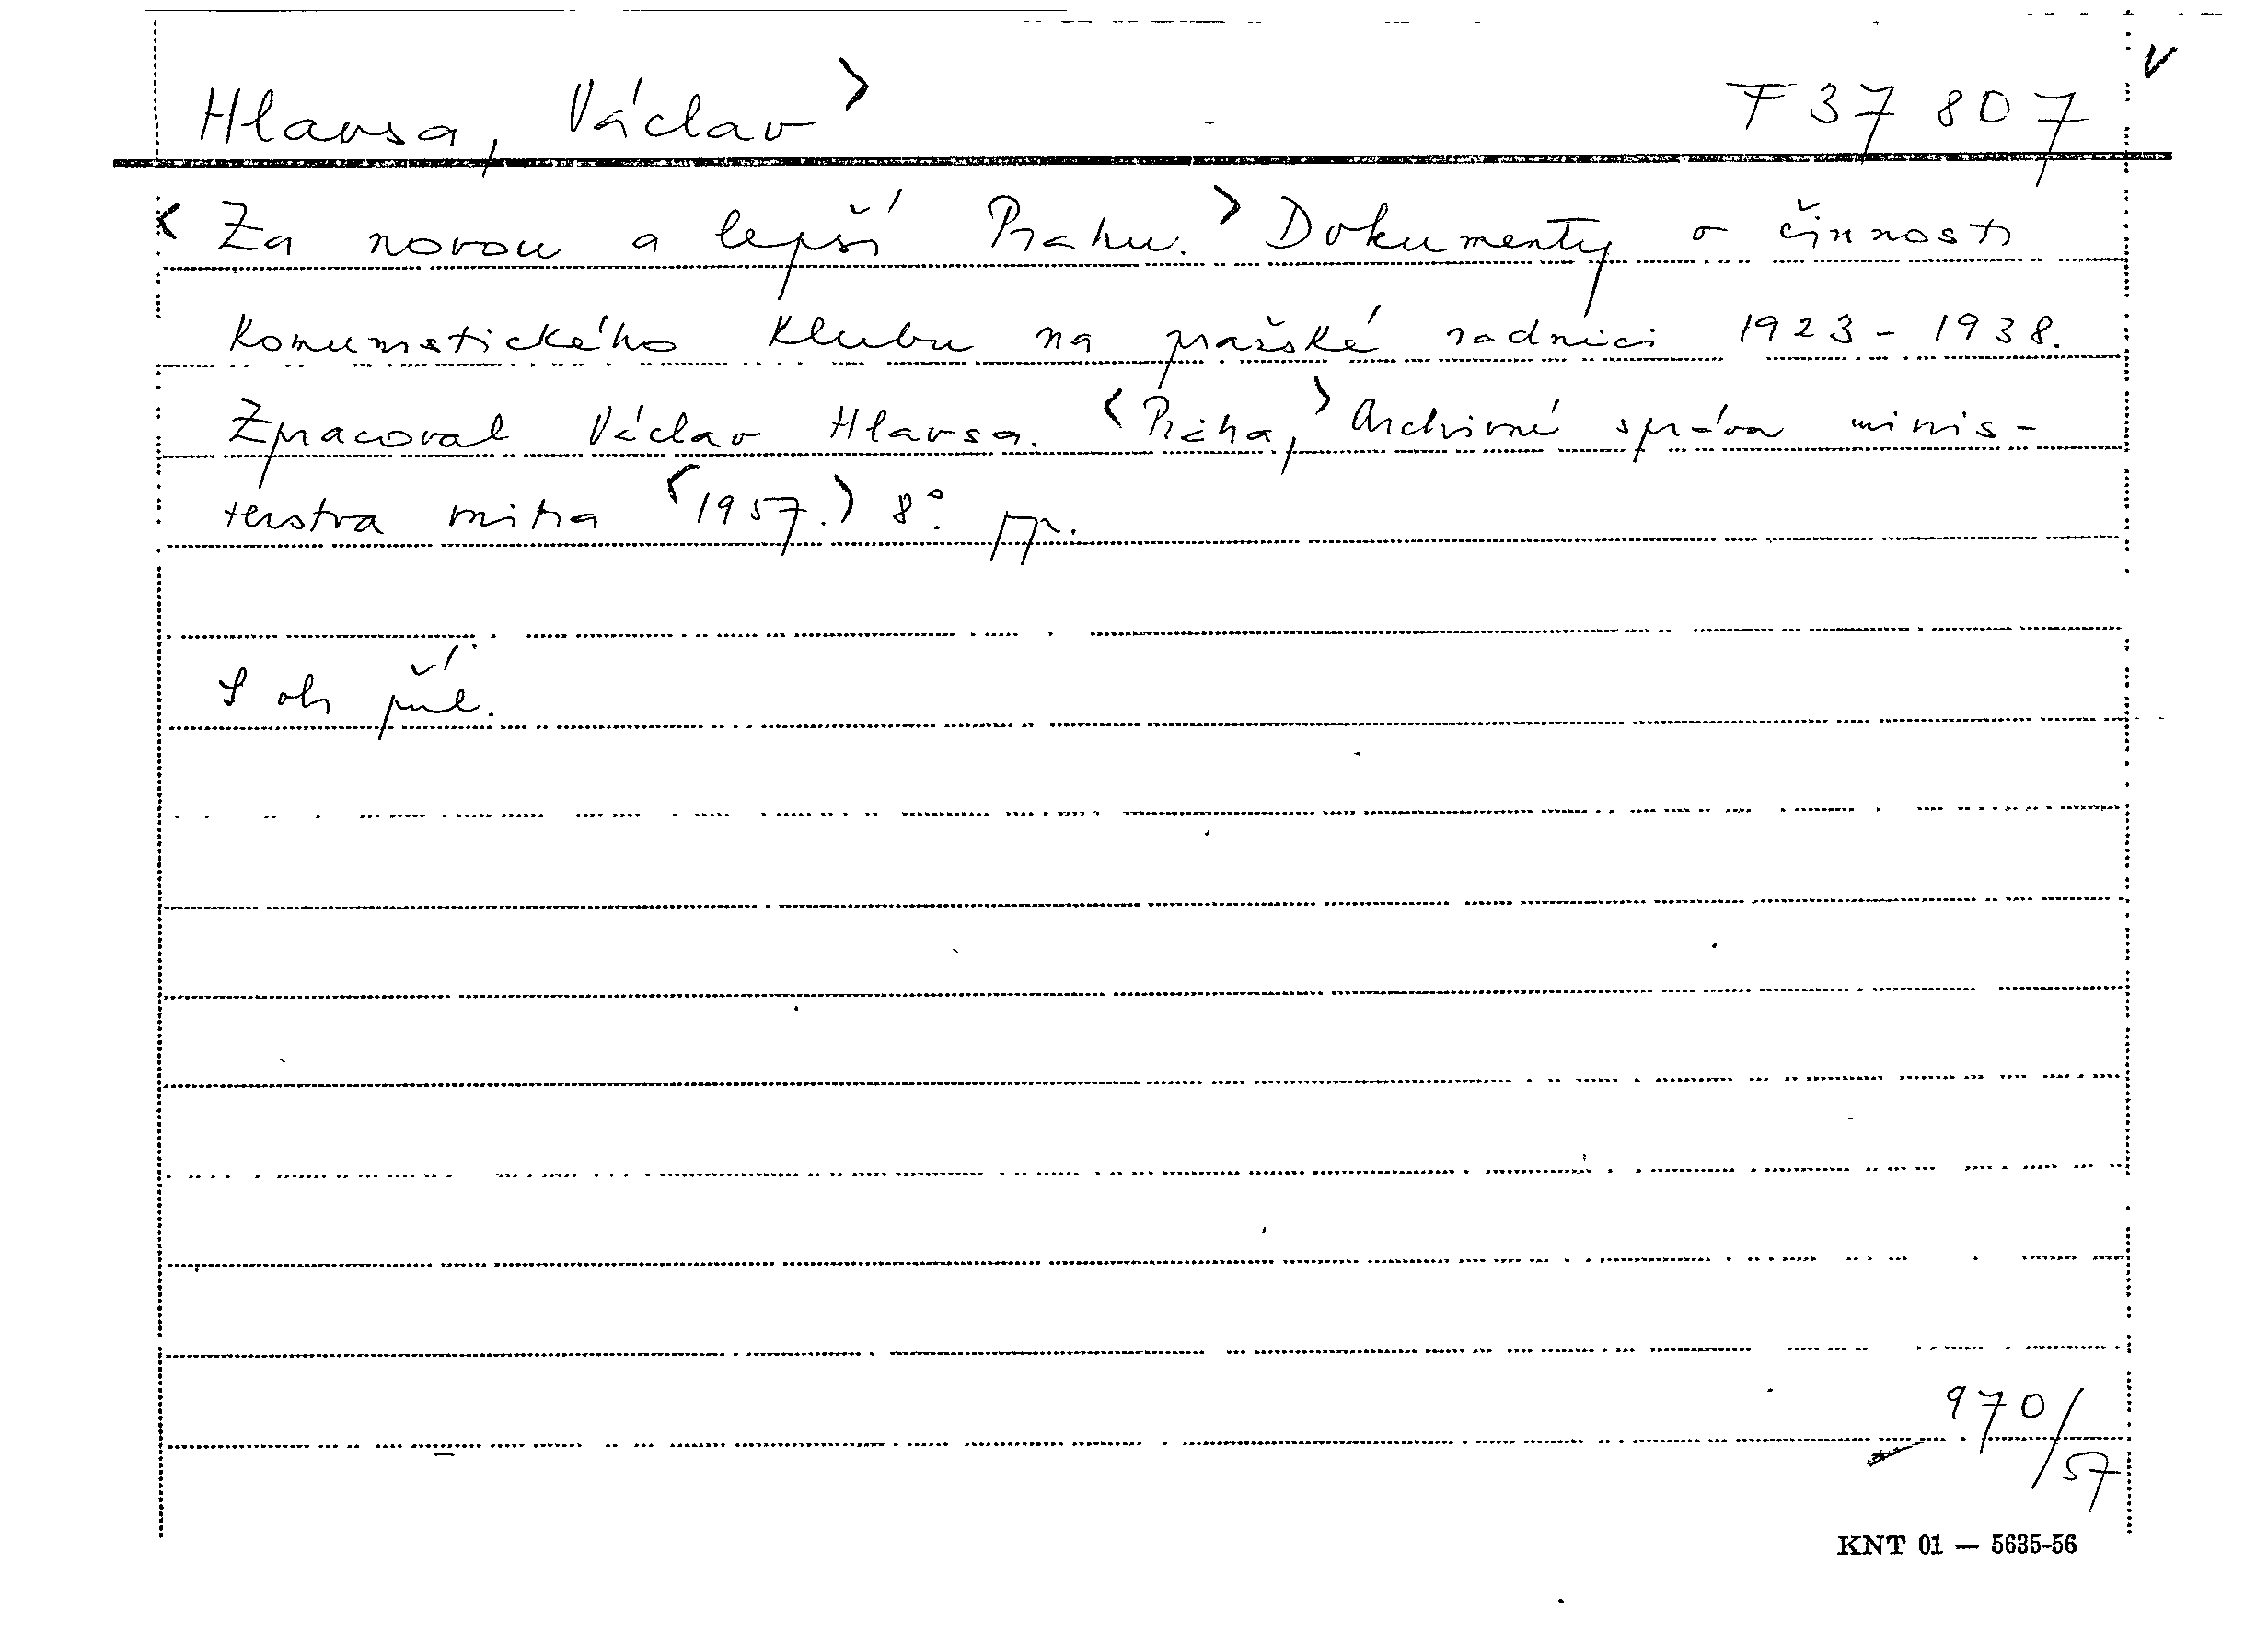 Hlavsa, Václav > F 37 807 v
< Za novou a lepší Prahu. > Dokumenty o činnosti
Komunistického klubu na pražské radnici 1923-1938.
Zpracoval Václav Hlavsa. < Praha, > Archivní správa minis-
terstva vnitra <1957.> 8°. pp.
S ob příl.
970/57
KNT 01 — 5635-56